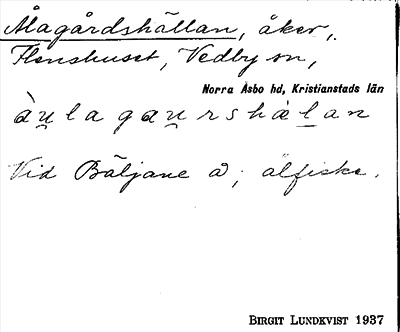 Ålagårdshällan, åker,
Flenshuset, Vedby sn,
Norra Åsbo hd, Kristianstads län
Vid Bäljane å; ålfiske.
BIRGIT LUNDKVIST 1937